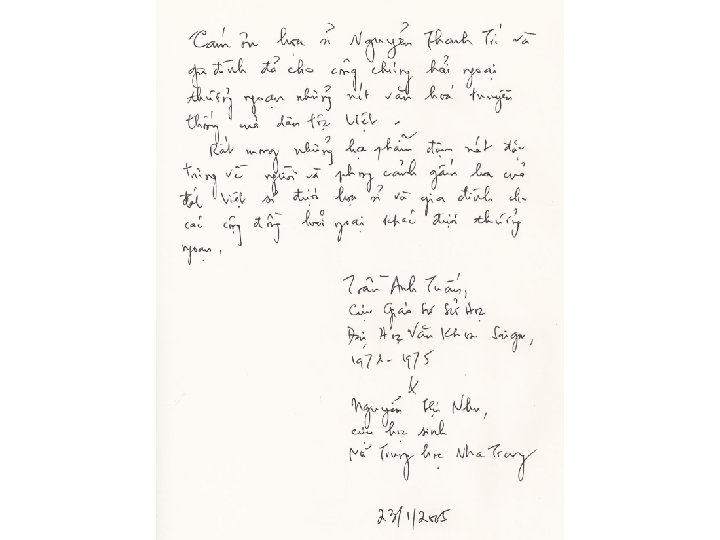 Cám ơn họa sĩ Nguyễn Thanh Trí và
gia đình đã cho công chúng hải ngoại
thưởng ngoạn những nét văn hoá truyền
thống mà dân tộc Việt.
Rất mong những họa phẩm đậm nét đặc
trưng về người và phong cảnh gấm hoa của
đất Việt sẽ được họa sĩ và gia đình cho
các cộng đồng hải ngoại khác được thưởng
ngoạn.
Trần Anh Tuấn,
Cựu Giáo Sư Sử Học
Đại Học Văn Khoa Saigon,
1972-1975
&
Nguyễn Thị Như,
cựu học sinh
Nữ Trung học Nha Trang
23/1/2005